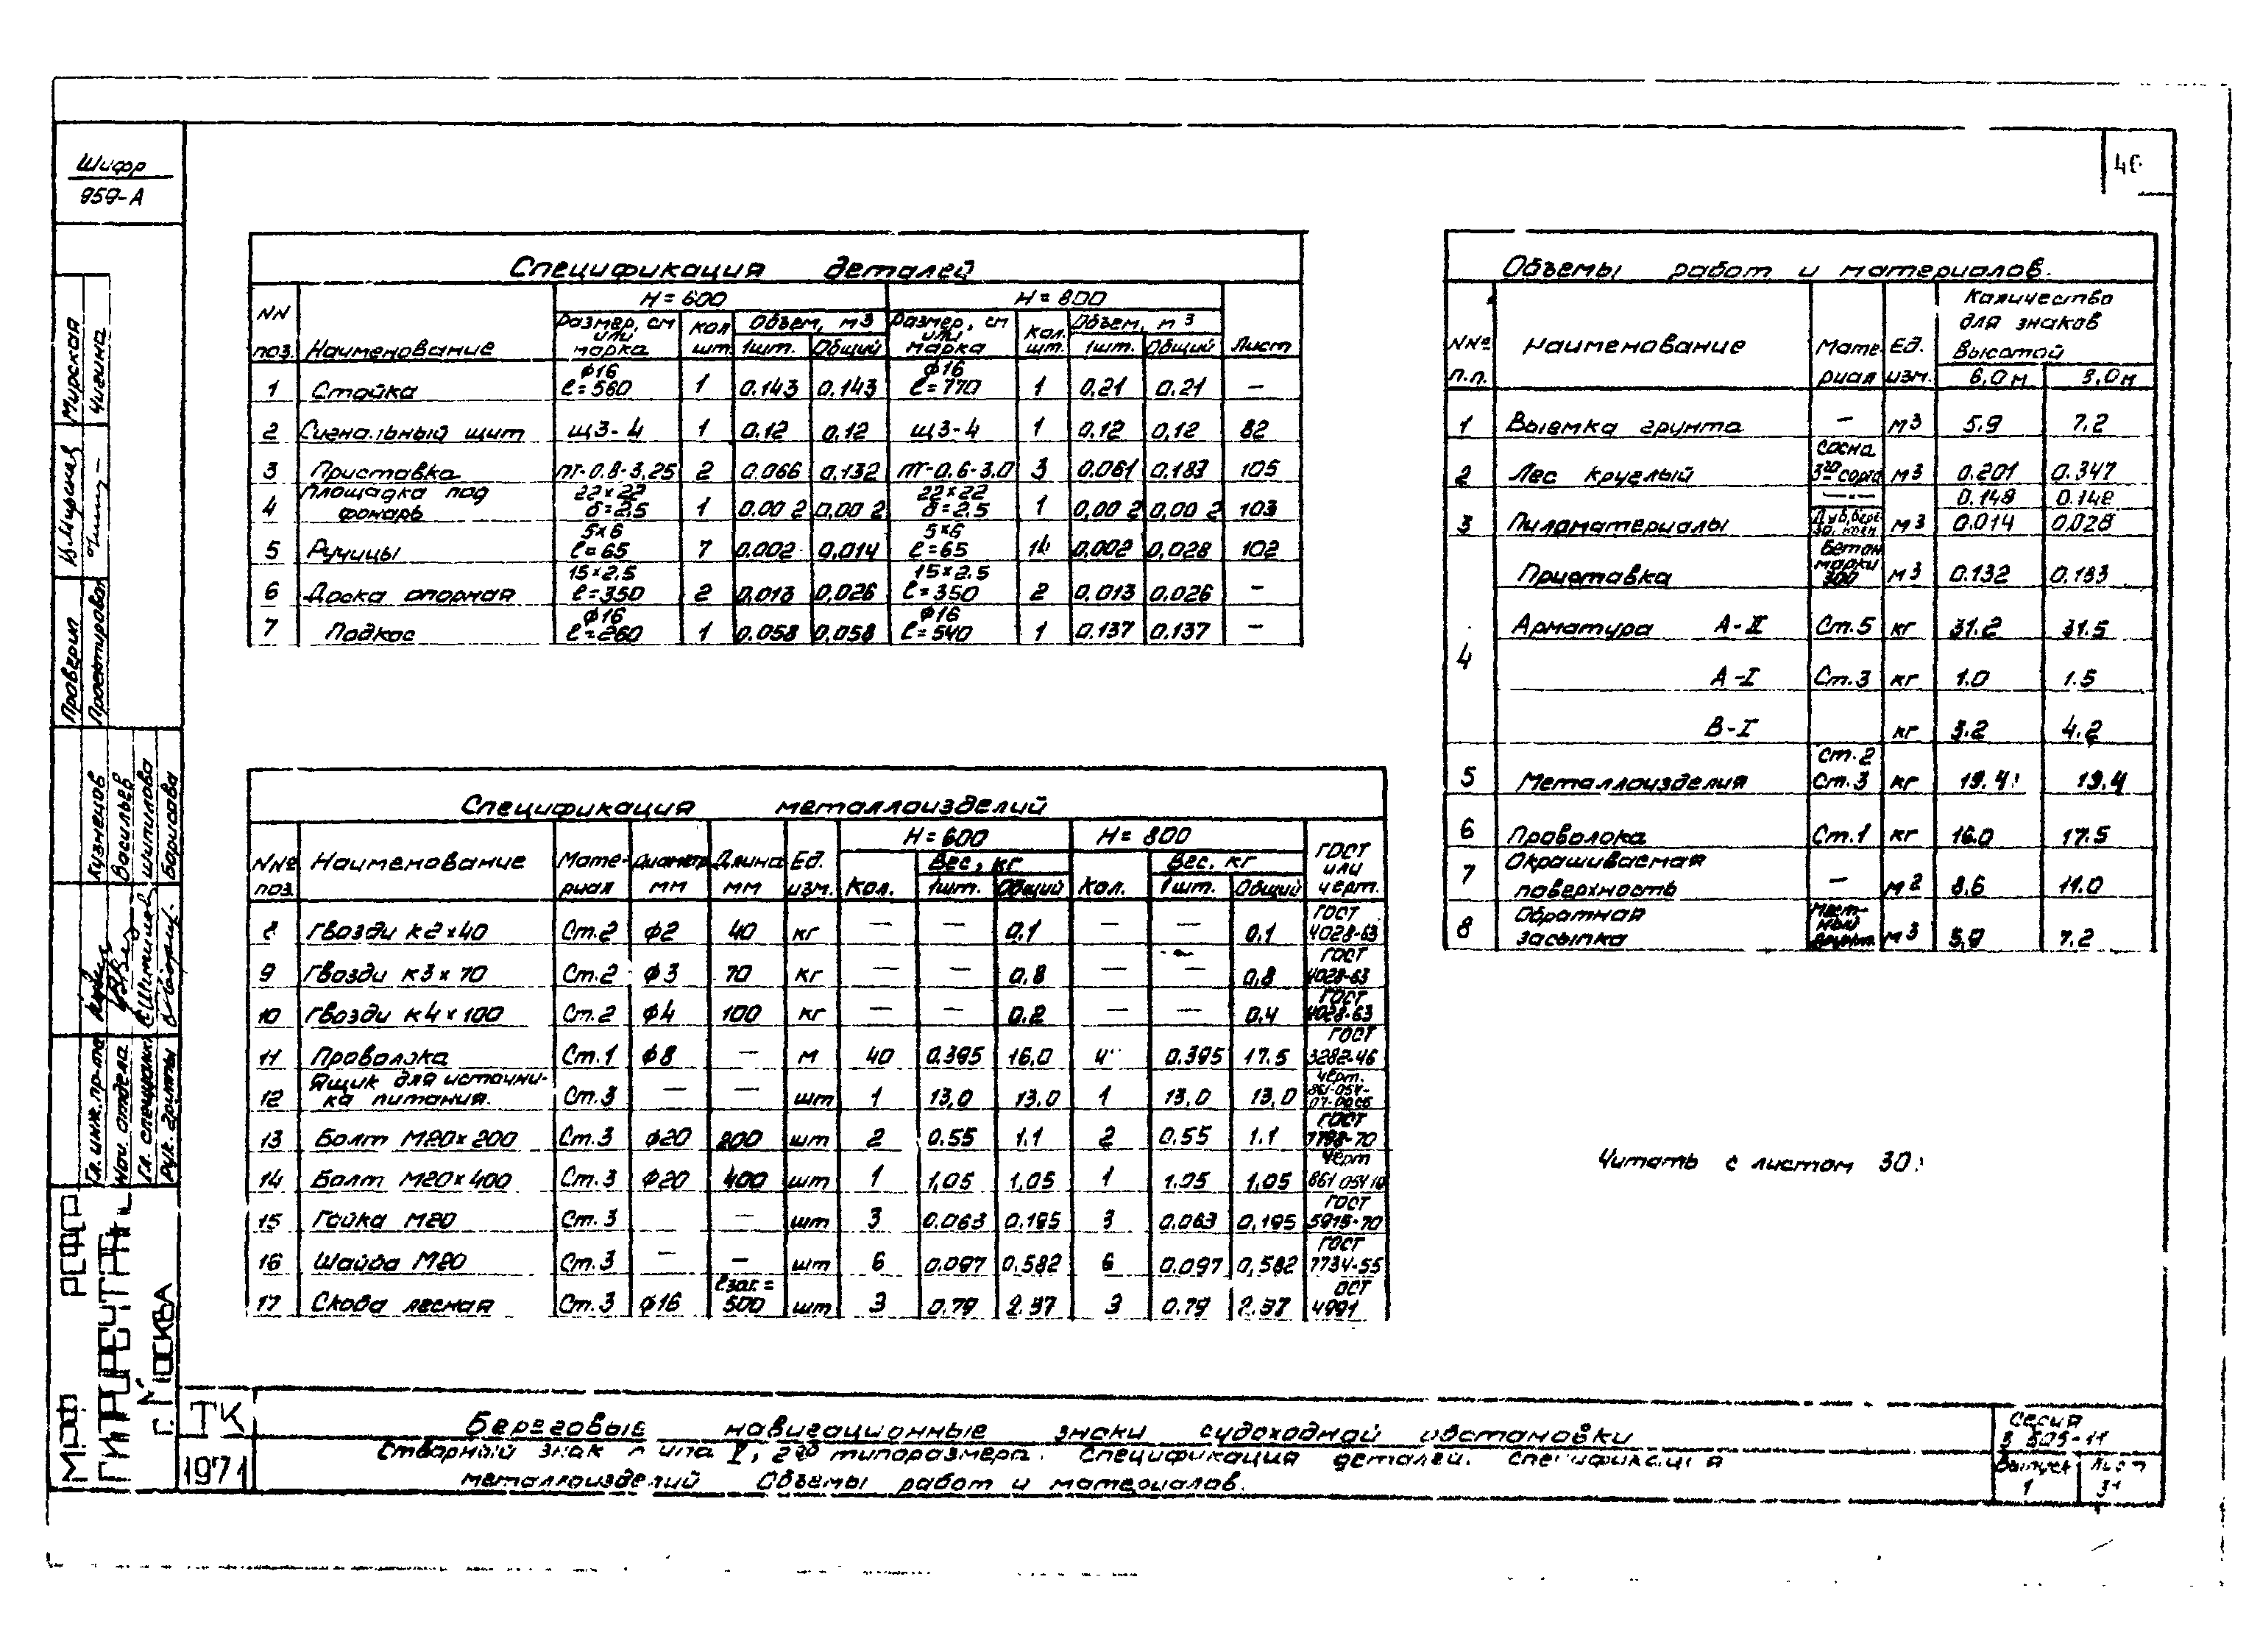 Шифр
959-А
Спецификация деталей
NN поз. Наименование H=600 H=800 Лист
Размер, см или марка Кол шт. Объем, м3 1шт. Общий Размер, см или марка Кол. шт. Объем, м3 1шт. Общий
1 Стойка ϕ16 ℓ=560 1 0.143 0.143 ϕ16 ℓ=770 1 0.21 0.21 —
2 Сигнальный щит щ3-4 1 0.12 0.12 щ3-4 1 0.12 0.12 82
3 Приставка ПТ-0.8-3.25 2 0.066 0.132 ПТ-0.6-3.0 3 0.061 0.183 105
4 Площадка под фонарь 22×22 δ=2.5 1 0.002 0.002 22×22 δ=2.5 1 0.002 0.002 103
5 Ручицы 5×6 ℓ=65 7 0.002 0.014 5×6 ℓ=65 14 0.002 0.028 102
6 Доска опорная 15×2.5 ℓ=350 2 0.013 0.026 15×2.5 ℓ=350 2 0.013 0.026 —
7 Подкос ϕ16 ℓ=260 1 0.058 0.058 ϕ16 ℓ=540 1 0.137 0.137 —
Спецификация металлоизделий
NNº поз. Наименование Материал Диаметр мм Длина мм Ед. изм. H=600 H=800 ГОСТ или черт.
Кол. Вес, кг 1шт. Общий Кол. Вес, кг 1шт. Общий
8 Гвозди К2×40 Ст.2 ϕ2 40 кг — — 0.1 — — 0.1 ГОСТ 4028-63
9 Гвозди К3×70 Ст.2 ϕ3 70 кг — — 0.8 — — 0.8 ГОСТ 4028-63
10 Гвозди К4×100 Ст.2 ϕ4 100 кг — — 0.2 — — 0.4 ГОСТ 4028-63
11 Проволока Ст.1 ϕ8 — м 40 0.395 16.0 0.395 17.5 ГОСТ 3282-46
12 Ящик для источника питания. Ст.3 — — шт 1 13.0 13.0 1 13.0 13.0 Черт. 861-054-
13 Болт М20×200 Ст.3 ϕ20 200 шт 2 0.55 1.1 2 0.55 1.1 ГОСТ 7798-70
14 Болт М20×400 Ст.3 ϕ20 400 шт 1 1.05 1.05 1 1.05 1.05 Черт 861 054 10
15 Гайка М20 Ст.3 — шт 3 0.063 0.195 3 0.063 0.195 ГОСТ 5915-70
16 Шайба М20 Ст.3 — — шт 6 0.097 0.582 6 0.097 0.582 ГОСТ 7734-55
17 Скоба лесная Ст.3 ϕ16 ℓзаг.= 500 шт 3 0.79 2.37 3 0.79 2.37 ОСТ 4991
Объемы работ и материалов.
NNº п.п. Наименование Материал Ед. изм. Количество для знаков высотой
6,0м 8,0м
1 Выемка грунта — м3 5.9 7.2
2 Лес круглый Сосна 3го сорта м3 0.201 0.347
0.148 0.148
3 Пиломатериалы м3 0.014 0.028
4
Приставка Бетон марки 300 м3 0.132 0.183
Арматура А-II Ст.5 кг 31.2 31.5
А-I Ст.3 кг 1.0 1.5
В-I кг 3.2 4.2
5 Металлоизделия Ст.2 Ст.3 кг 19.4 19.4
6 Проволока Ст.1 кг 16.0 17.5
7 Окрашиваемая поверхность — м2 8.6 11.0
8 Обратная засыпка Местный грунт. м3 5.9 7.2
Читать с листом 30.
Проверил Мирская
Проектировал Чигина
Гл. инж. пр-та Кузнецов
Нач. отдела Васильев
Гл. специалист Шипилова
Рук. группы Борисова
МРФ РСФСР
ГИПРОРЕЧТРАНС
г. Москва
ТК
1971
Береговые навигационные знаки судоходной обстановки
Створный знак типа V, 2го типоразмера. Спецификация деталей. Спецификация
металлоизделий Объемы работ и материалов.
Серия
3 505-11
Выпуск Лист
1 31